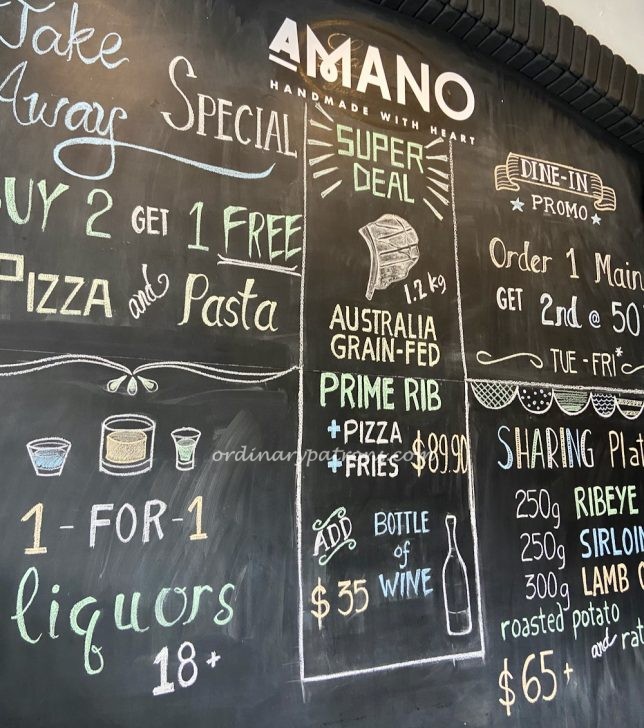 AMANO
HANDMADE WITH HEART
Take
Away SPECIAL
BUY 2 GET 1 FREE
PIZZA and Pasta
1-FOR-1
liquors
18+
SUPER
DEAL
1.2 kg
AUSTRALIA
GRAIN-FED
PRIME RIB
+ PIZZA
+ FRIES $89.90
ADD BOTTLE
of
$35 WINE
DINE-IN
PROMO
Order 1 Main
GET 2nd @ 50
TUE - FRI*
SHARING Plat
250g RIBEYE
250g SIRLOIN
300g LAMB
roasted potato
and rat
$65+
ordinarypatrons.com